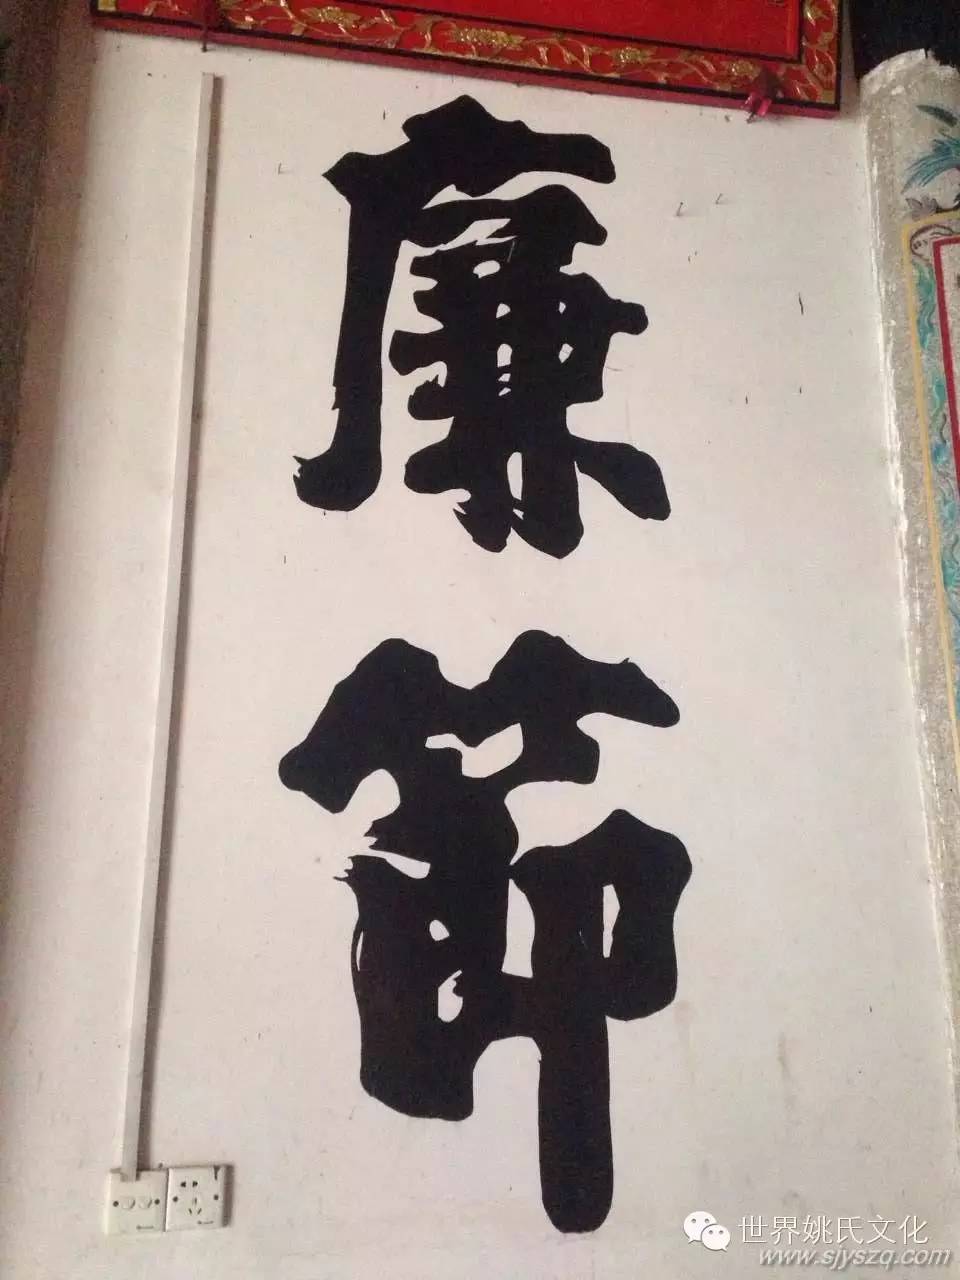 廉
節
世界姚氏文化
www.sjyszq.com